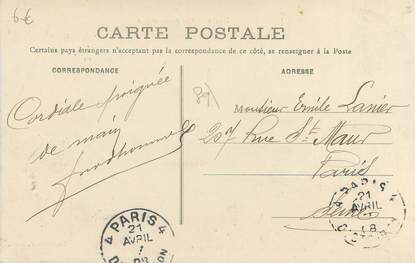 6€
CARTE POSTALE
Certains pays étrangers n'acceptant pas la correspondance de ce côté, se renseigner à la Poste
CORRESPONDANCE
ADRESSE
Cordiale poignée
de main
Monsieur Emile Lanier
207 Rue St Maur
Paris
PARIS
21
AVRIL
PARIS
21
AVRIL